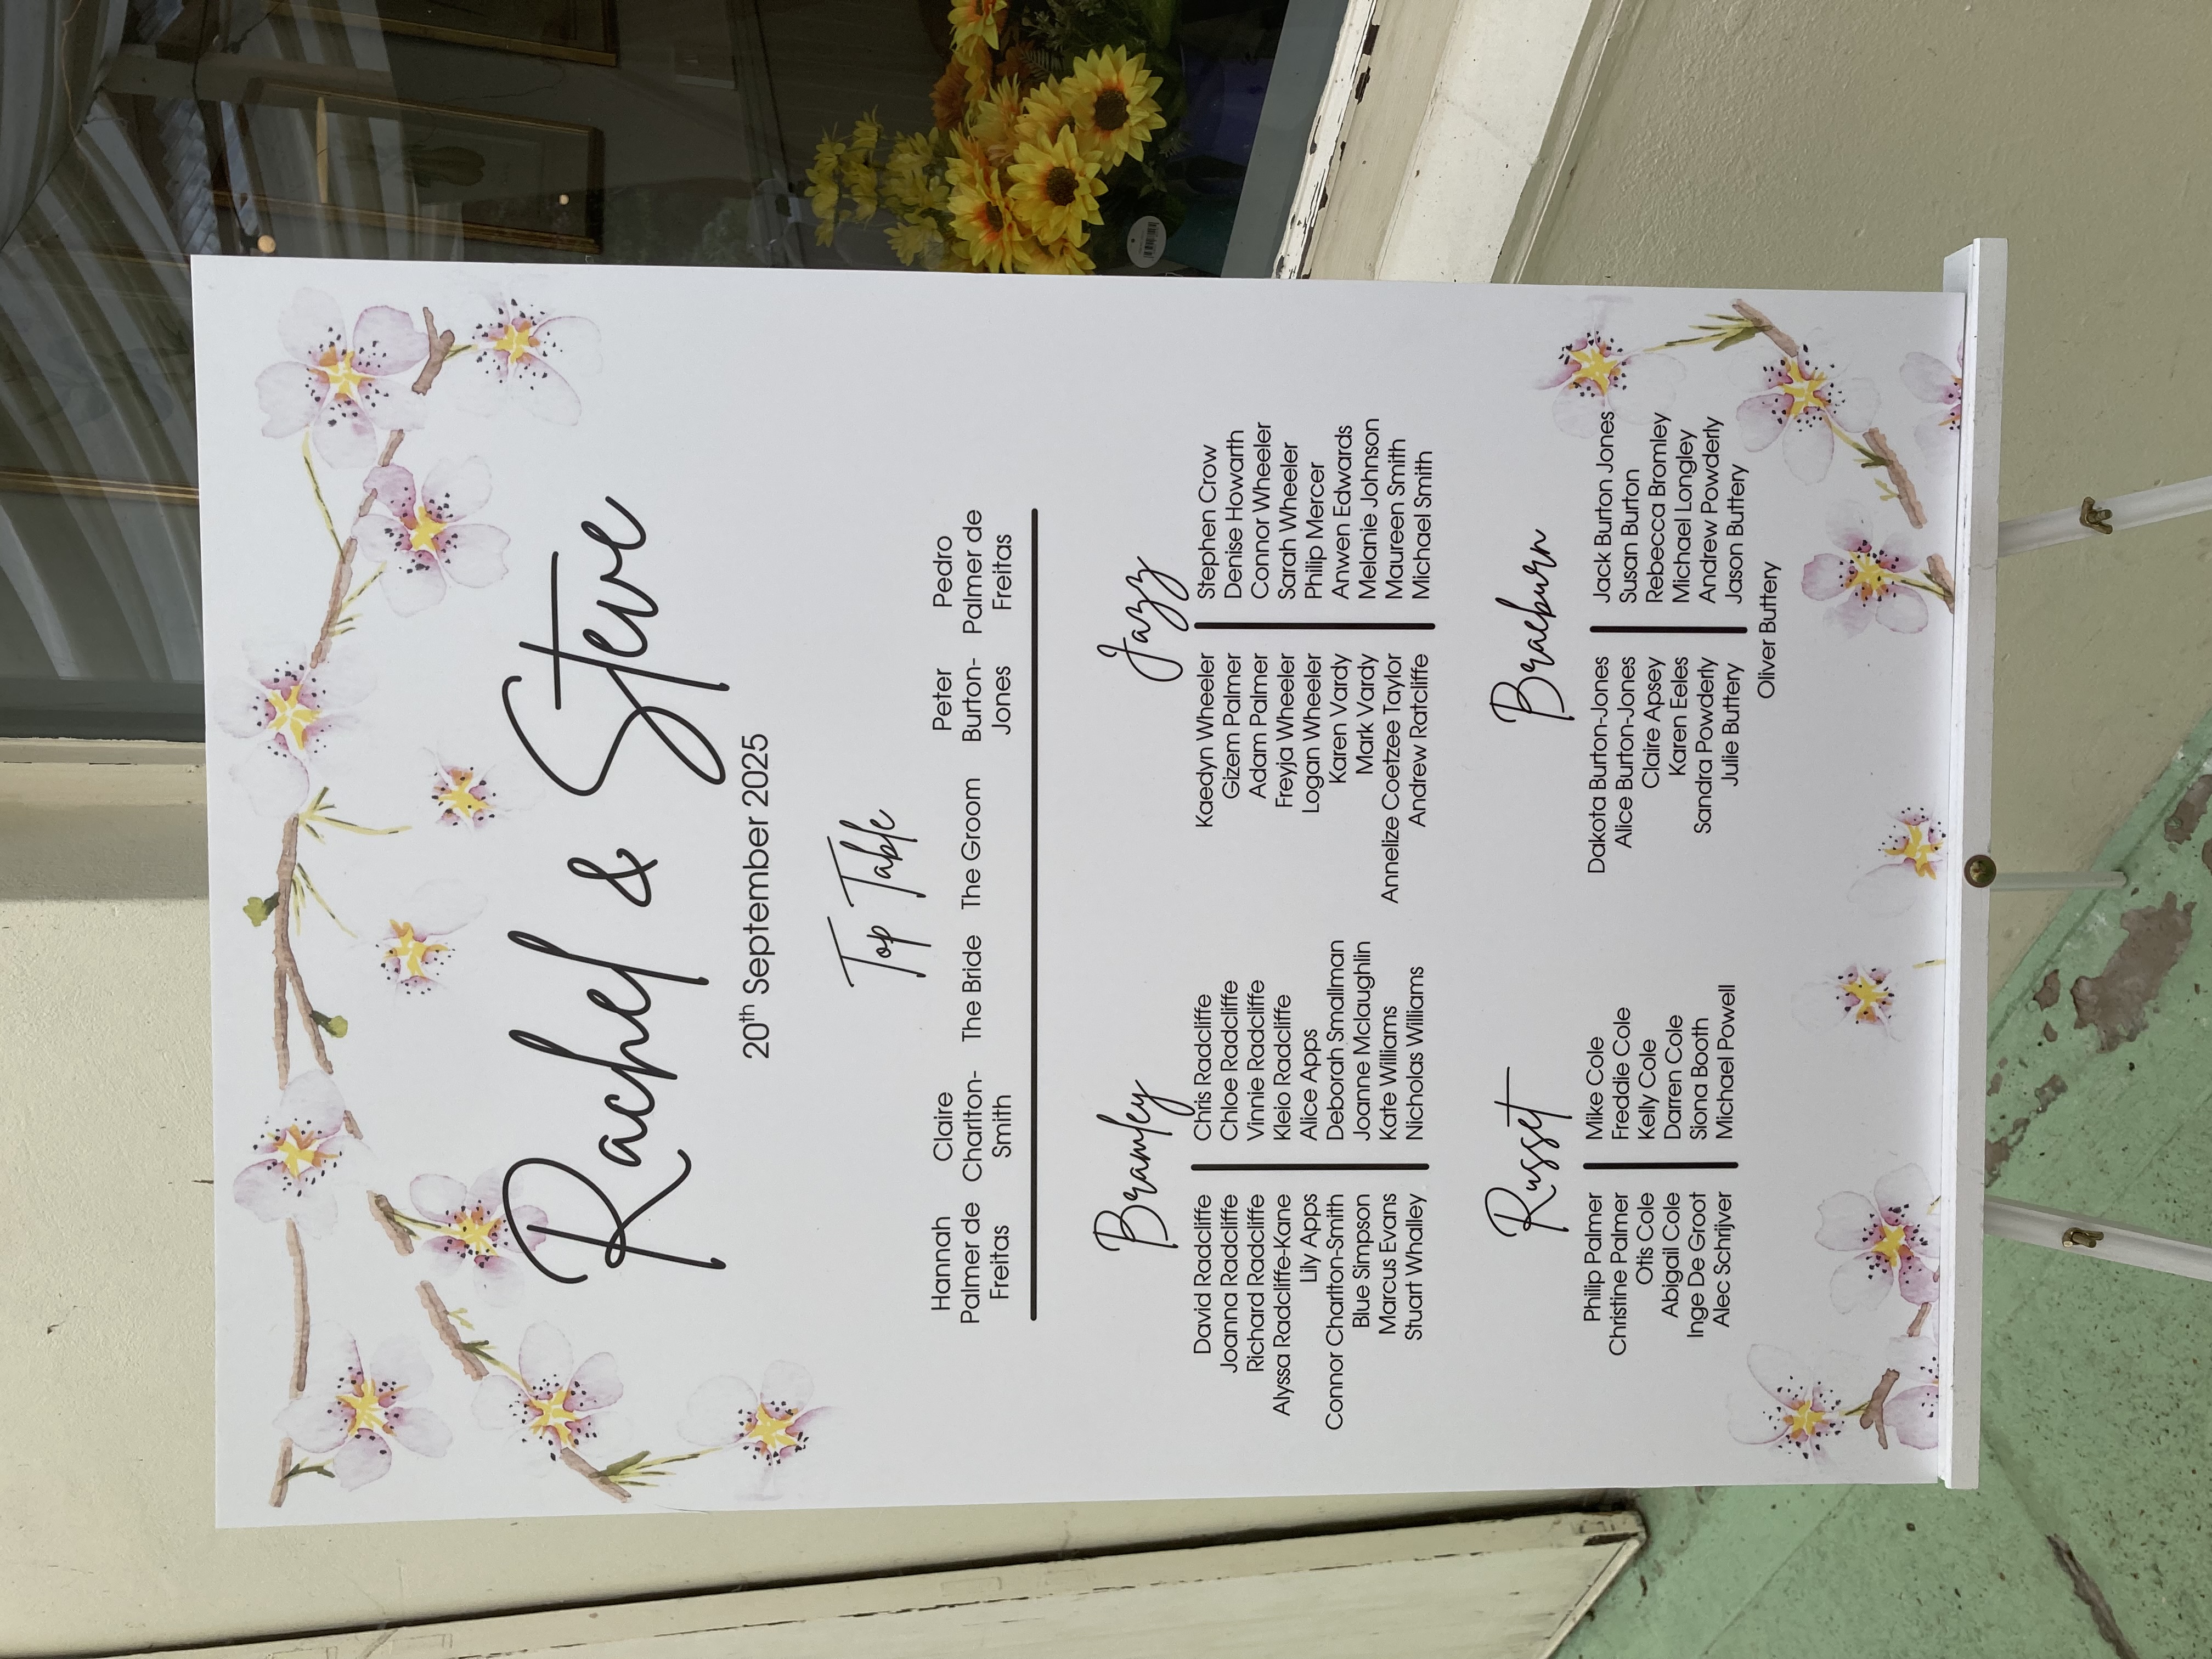 Rachel & Steve
20th September 2025
Top Table
Hannah Palmer de Freitas
Claire Charlton-Smith
The Bride
The Groom
Peter Burton-Jones
Pedro Palmer de Freitas
Bramley
David Radcliffe
Joanna Radcliffe
Richard Radcliffe
Alyssa Radcliffe-Kane
Lily Apps
Connor Charlton-Smith
Blue Simpson
Marcus Evans
Stuart Whalley
Chris Radcliffe
Chloe Radcliffe
Vinnie Radcliffe
Kleio Radcliffe
Alice Apps
Deborah Smallman
Joanne Mclaughlin
Kate Williams
Nicholas Williams
Jazz
Kaedyn Wheeler
Gizem Palmer
Adam Palmer
Freyja Wheeler
Logan Wheeler
Karen Vardy
Mark Vardy
Annelize Coetzee Taylor
Andrew Ratcliffe
Stephen Crow
Denise Howarth
Connor Wheeler
Sarah Wheeler
Philip Mercer
Anwen Edwards
Melanie Johnson
Maureen Smith
Michael Smith
Russet
Philip Palmer
Christine Palmer
Otis Cole
Abigail Cole
Inge De Groot
Alec Schrijver
Mike Cole
Freddie Cole
Kelly Cole
Darren Cole
Siona Booth
Michael Powell
Braeburn
Dakota Burton-Jones
Alice Burton-Jones
Claire Apsey
Karen Eeles
Sandra Powderly
Julie Buttery
Jack Burton Jones
Susan Burton
Rebecca Bromley
Michael Longley
Andrew Powderly
Jason Buttery
Oliver Buttery